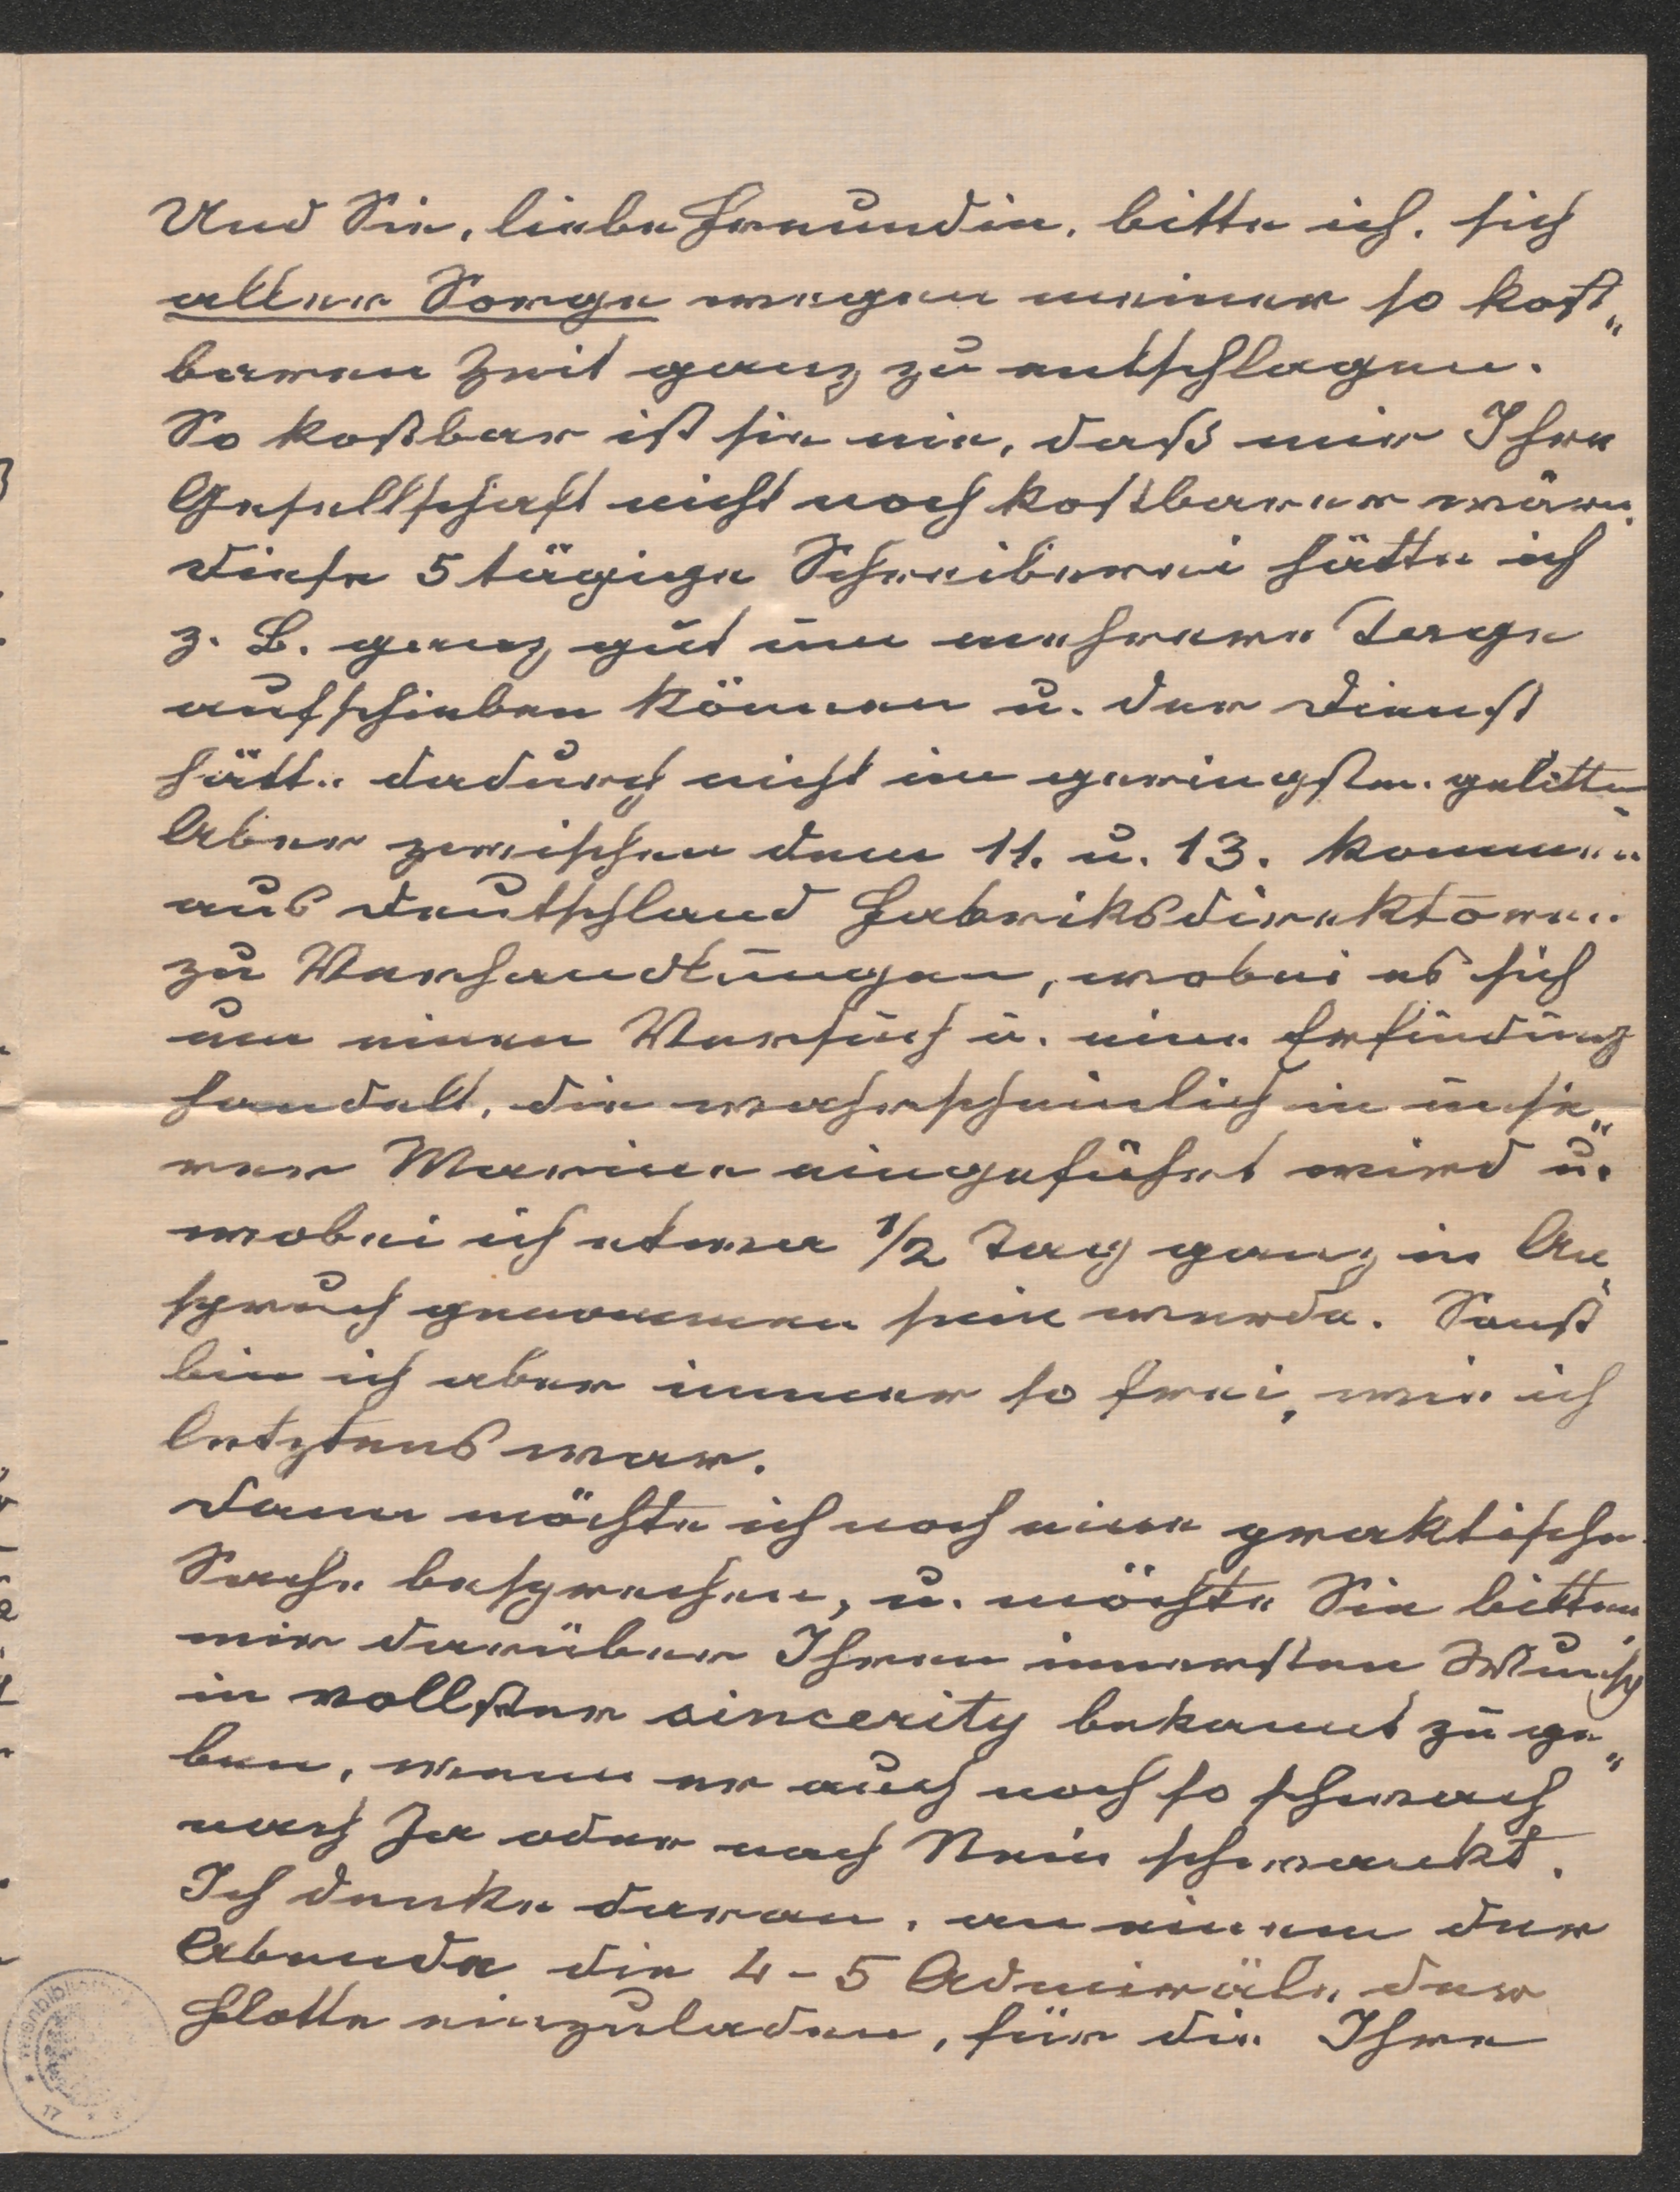 Und Sie, liebe Freundin, bitte ich, sich
aller Sorge wegen meiner so kost„
baren Zeit ganz zu entschlagen.
So kostbar ist sie nie, dass mir Ihre
Gesellschaft nicht noch kostbarer wäre.
Diese 5 tägige Schreiberei hätte ich
z. B. ganz gut um mehrere Tage
aufschieben können u. der Dienst
hätte dadurch nicht im geringsten gelitten
Aber zwischen dem 11. u. 13. kommen
aus Deutschland Fabriksdirektoren
zu Verhandlungen, wobei es sich
um einen Versuch u. eine Erfindung
handelt, die wahrscheinlich in unse„
rer Marine eingeführt wird u.
wobei ich etwa 1/2 Tag ganz in An„
spruch genommen sein werde. Sonst
bin ich aber immer so frei, wie ich
letztens war.
Dann möchte ich noch eine praktische
Sache besprechen, u. möchte Sie bitten
mir darüber Ihren innersten Wunsch
in vollster sincerity bekannt zu ge„
ben, wenn er auch noch so schwach
nach Ja oder nach Nein schwankt.
Ich denke daran, an einem der
Abende die 4-5 Admiräle der
Flotte einzuladen, für die Ihre